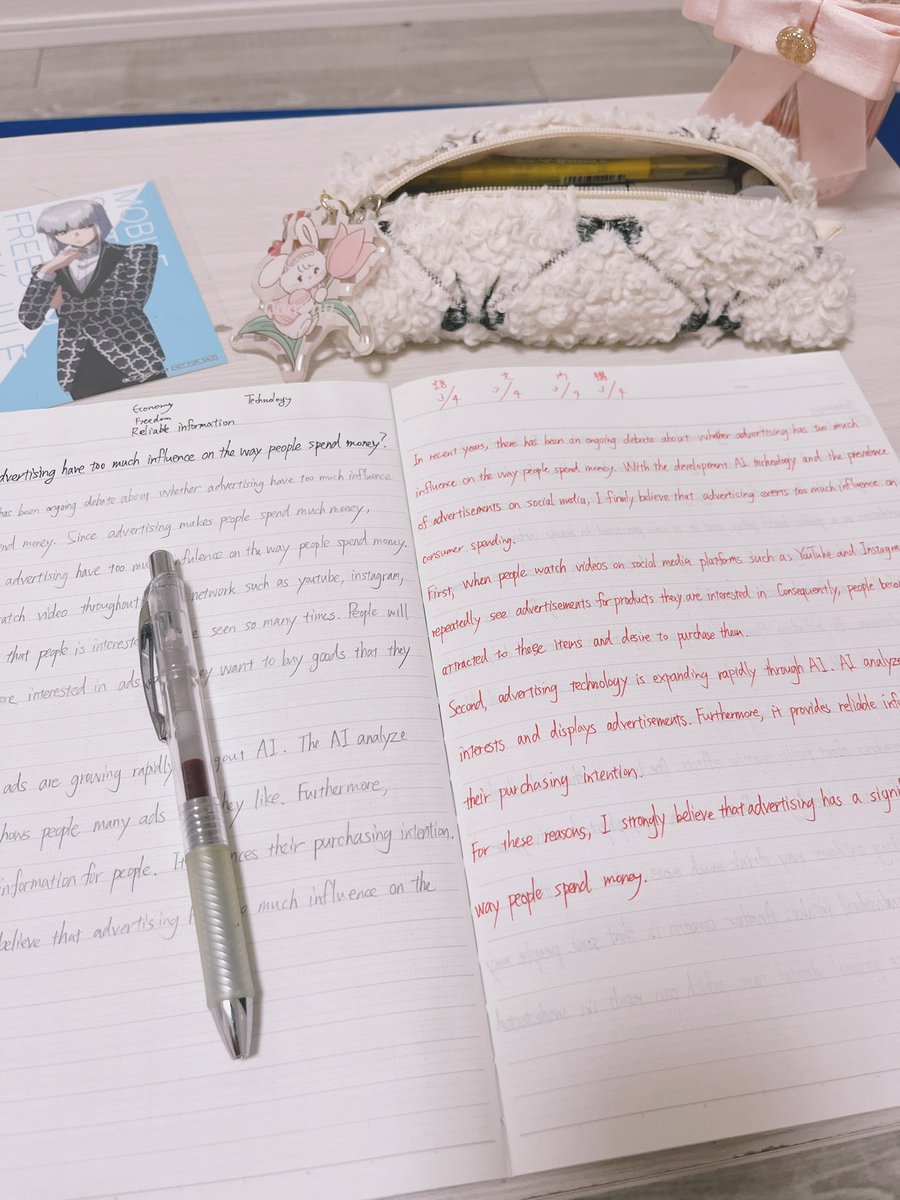 NOT FOR SALE
Economy
Technology
Freedom
Reliable information
advertising have too much influence on the way people spend money?
has been ongoing debate about whether advertising have too much influence
money. Since advertising makes people spend much money,
advertising have too on the way people spend money.
video throughout network such as youtube, instagram,
that people is seen so many times. People will
are interested in ads want to buy goods that they
ads are growing rapidly AI. The AI analyze
shows people many ads like. Furthermore,
information for people. their purchasing intention.
believe that advertising much influence on the
語 文 内 構
3/4 3/4 3/4 3/4
In recent years, there has been an ongoing debate about whether advertising has too much
influence on the way people spend money. With the development AI technology and the prevalence
of advertisements on social media, I firmly believe that advertising exerts too much influence on
consumer spending.
First, when people watch videos on social media platforms such as YouTube and Instagram
repeatedly see advertisements for products they are interested in. Consequently, people
attracted to these items and desire to purchase them.
Second, advertising technology is expanding rapidly through AI. AI
interests and displays advertisements. Furthermore, it provides reliable
their purchasing intention.
For these reasons, I strongly believe that advertising has a
way people spend money.